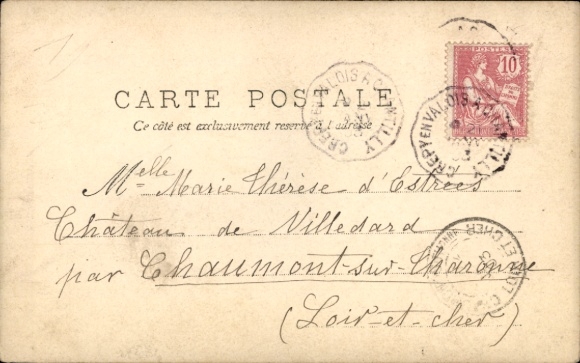 POSTES
10
CREPY EN VALOIS A CHANTILLY
CREPY EN VALOIS A CHANTILLY
CARTE POSTALE
Ce côté est exclusivement réservé à l'adresse
Melle Marie Thérèse d'Estrées
Château de Villedard
par Chaumont-sur-Tharonne
(Loir-et-cher)
ET CHER